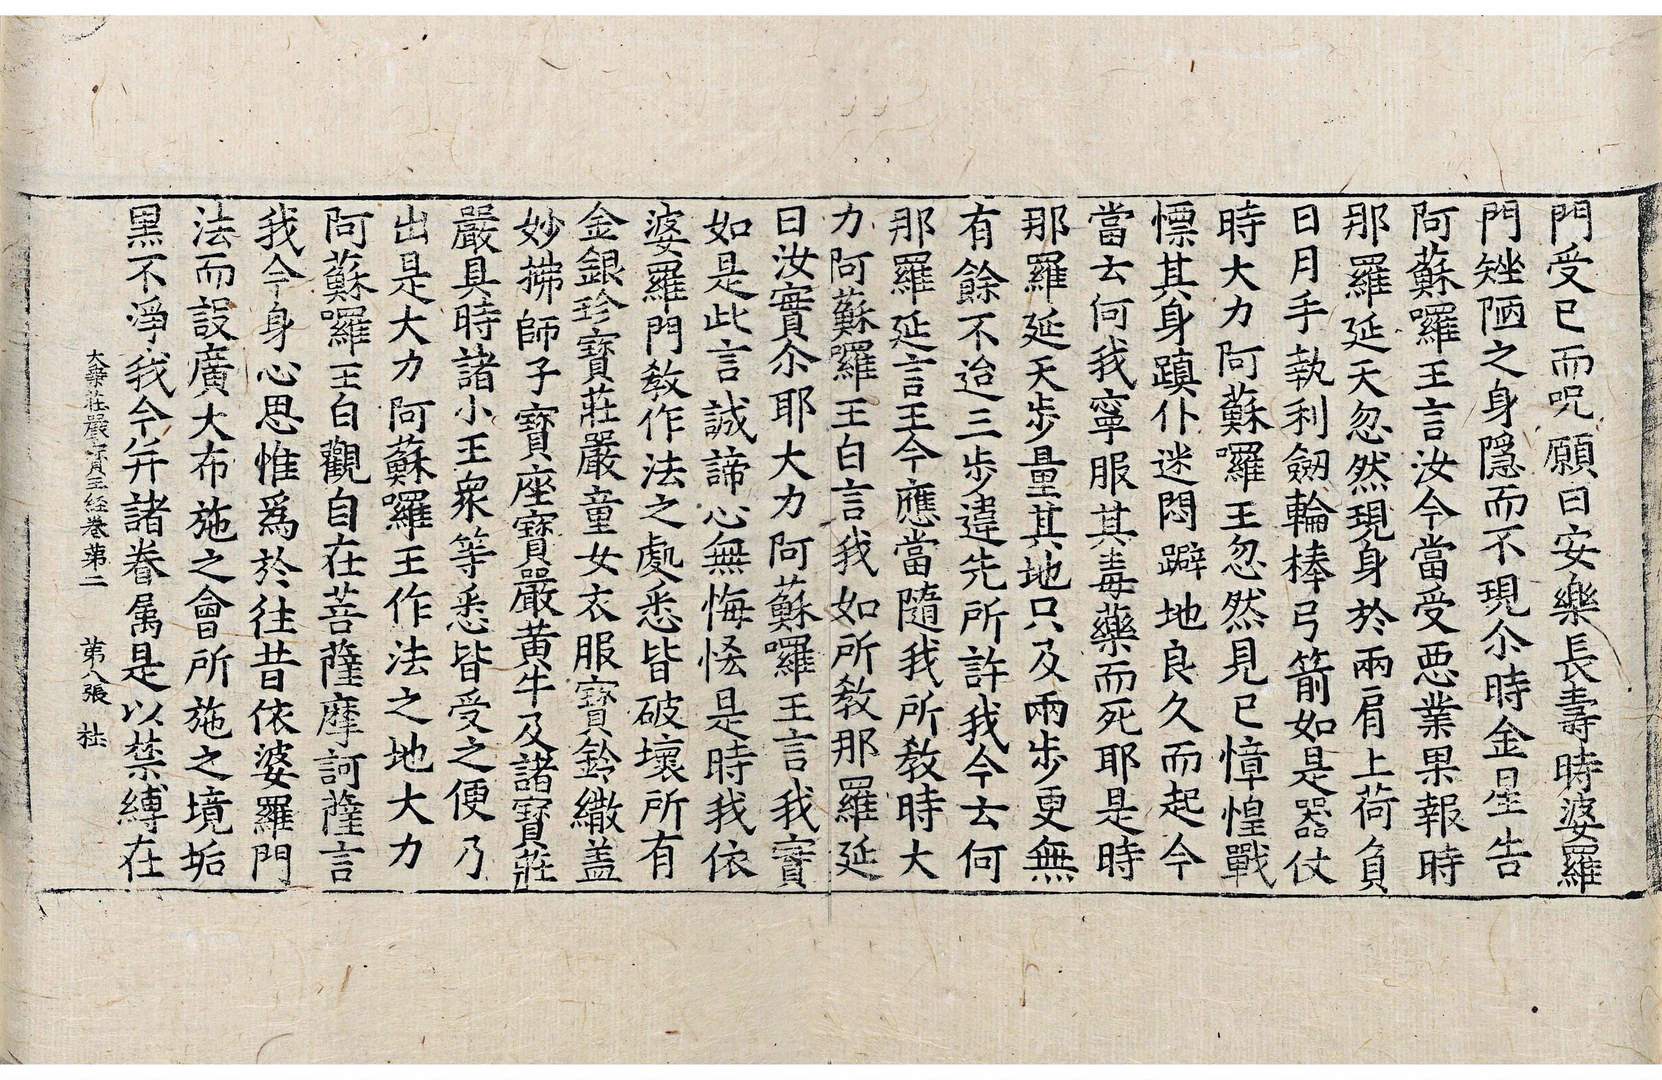 門受已而呪願曰安樂長壽時婆羅
門矬陋之身隱而不現尒時金星告
阿蘇囉王言汝今當受惡業果報時
那羅延天忽然現身於兩肩上荷負
日月手執利劒輪棒弓箭如是器仗
時大力阿蘇囉王忽然見已慞惶戰
慄其身蹎仆迷悶躃地良久而起今
當去何我寧服其毒藥而死耶是時
那羅延天步量其地只及兩步更無
有餘不迨三步違先所許我今去何
那羅延言王今應當隨我所教時大
力阿蘇囉王白言我如所教那羅延
曰汝實尒耶大力阿蘇囉王言我實
如是此言誠諦心無悔悋是時我依
婆羅門教作法之處悉皆破壞所有
金銀珍寶莊嚴童女衣服寶鈴繖盖
妙拂師子寶座寶嚴黃牛及諸寶莊
嚴具時諸小王衆等悉皆受之便乃
出是大力阿蘇囉王作法之地大力
阿蘇囉王白觀自在菩薩摩訶薩言
我今身心思惟爲於往昔依婆羅門
法而設廣大布施之會所施之境垢
黑不淨我今并諸眷属是以禁縛在
大乘莊嚴寶王经卷第二　第八張